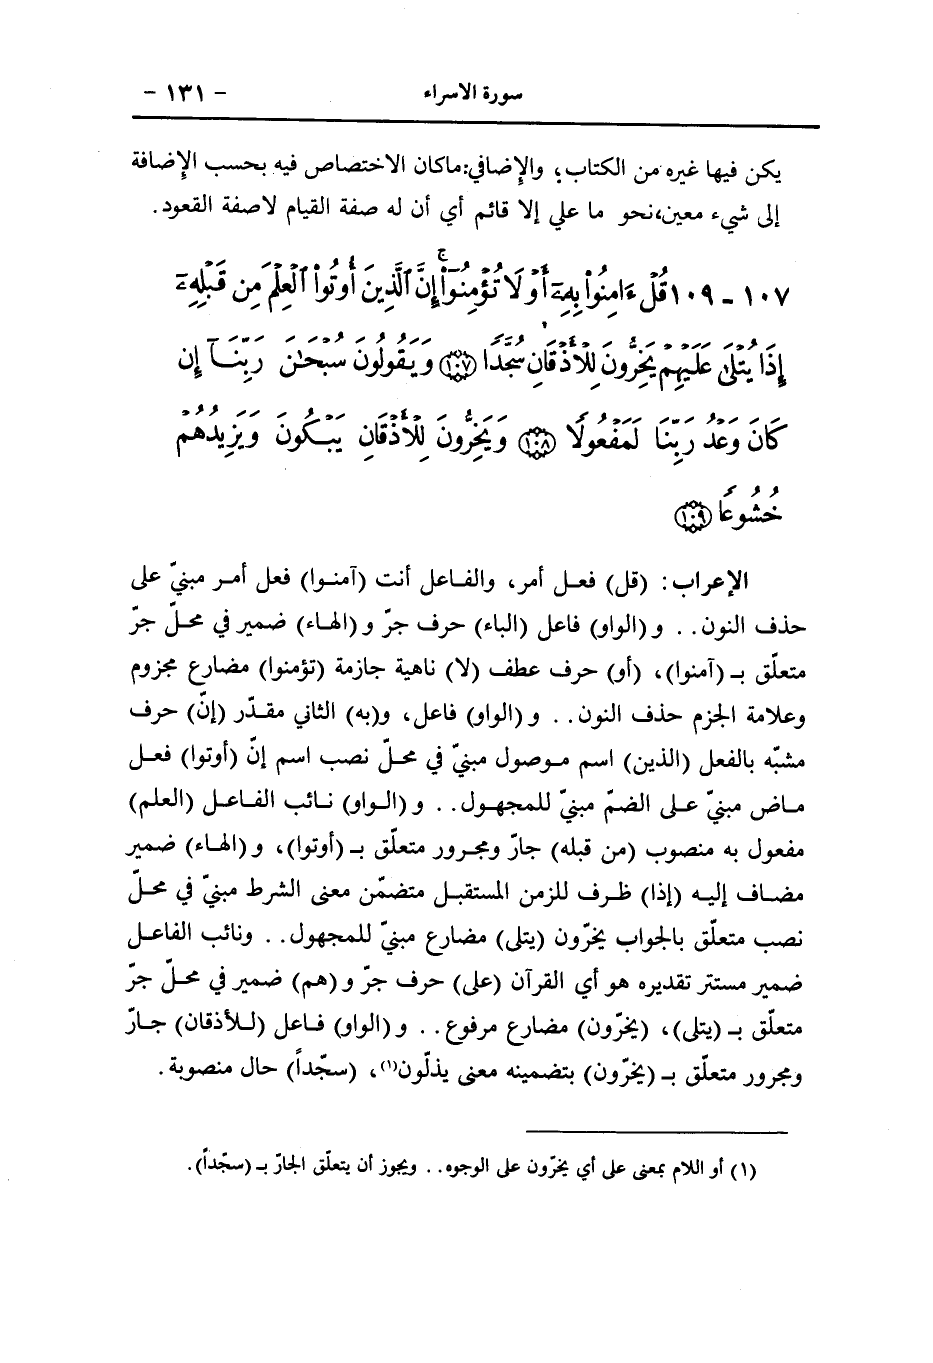 سورة الاسراء - ١٣١ -
يكن فيها غيره من الكتاب؛ والإضافي: ماكان الاختصاص فيه بحسب الإضافة
إلى شيء معين، نحو ما علي إلا قائم أي أن له صفة القيام لاصفة القعود.
١٠٧ - ١٠٩ قُلْ ءَامِنُوا۟ بِهِۦٓ أَوْ لَا تُؤْمِنُوٓا۟ ۚ إِنَّ ٱلَّذِينَ أُوتُوا۟ ٱلْعِلْمَ مِن قَبْلِهِۦٓ
إِذَا يُتْلَىٰ عَلَيْهِمْ يَخِرُّونَ لِلْأَذْقَانِ سُجَّدًا ﴿١٠٧﴾ وَيَقُولُونَ سُبْحَٰنَ رَبِّنَآ إِن
كَانَ وَعْدُ رَبِّنَا لَمَفْعُولًا ﴿١٠٨﴾ وَيَخِرُّونَ لِلْأَذْقَانِ يَبْكُونَ وَيَزِيدُهُمْ
خُشُوعًا ﴿١٠٩﴾
الإعراب: (قل) فعل أمر، والفاعل أنت (آمنوا) فعل أمر مبنيّ على
حذف النون.. و (الواو) فاعل (الباء) حرف جرّ و (الهاء) ضمير في محلّ جرّ
متعلّق بـ (آمنوا)، (أو) حرف عطف (لا) ناهية جازمة (تؤمنوا) مضارع مجزوم
وعلامة الجزم حذف النون.. و (الواو) فاعل، و(به) الثاني مقدّر (إنّ) حرف
مشبّه بالفعل (الذين) اسم موصول مبنيّ في محلّ نصب اسم إنّ (أوتوا) فعل
ماض مبنيّ على الضمّ مبنيّ للمجهول.. و (الواو) نائب الفاعل (العلم)
مفعول به منصوب (من قبله) جارّ ومجرور متعلّق بـ (أوتوا)، و (الهاء) ضمير
مضاف إليه (إذا) ظرف للزمن المستقبل متضمّن معنى الشرط مبنيّ في محلّ
نصب متعلّق بالجواب يخرّون (يتلى) مضارع مبنيّ للمجهول.. ونائب الفاعل
ضمير مستتر تقديره هو أي القرآن (على) حرف جرّ و (هم) ضمير في محلّ جرّ
متعلّق بـ (يتلى)، (يخرّون) مضارع مرفوع.. و (الواو) فاعل (للأذقان) جارّ
ومجرور متعلّق بـ (يخرّون) بتضمينه معنى يذلّون(١)، (سجّداً) حال منصوبة.
(١) أو اللام بمعنى على أي يخرّون على الوجوه.. ويجوز أن يتعلّق الجارّ بـ (سجّداً).